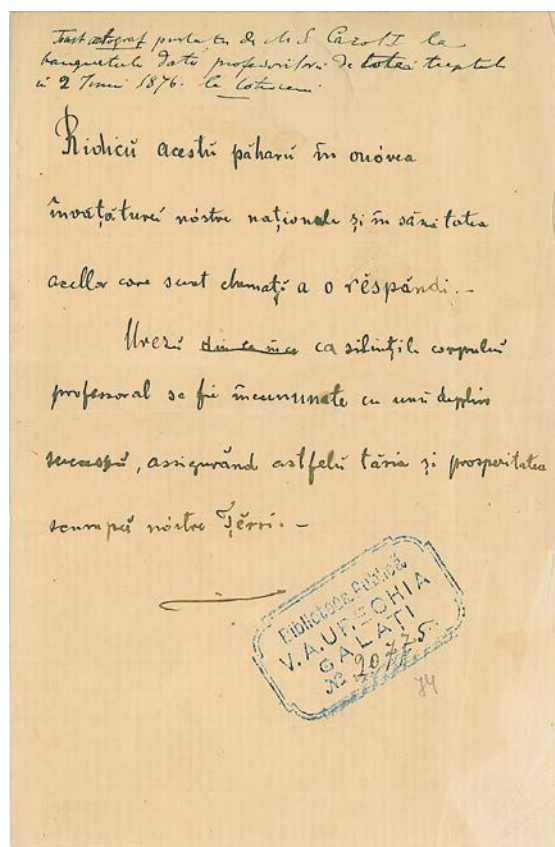 Toast autograf purtatu de M. S. Carol I la
banquetulu datu profesorilor de tote treptele
in 2 Juniu 1876. la Cotroceni
Ridicŭ acestŭ păharŭ în onórea
învățăturei nóstre naționale și în sănĕtatea
acellor care sunt chemați a o rĕspândi. –
Urezŭ ca silințile corpului
professoral se fie incununate cu unŭ deplin
succesŭ, assigurând astfelŭ tăria și prosperitatea
scumpei nóstre Țĕrri. –
Biblioteca Publică
V. A. URECHIA
GALAȚI
№ 20775
74